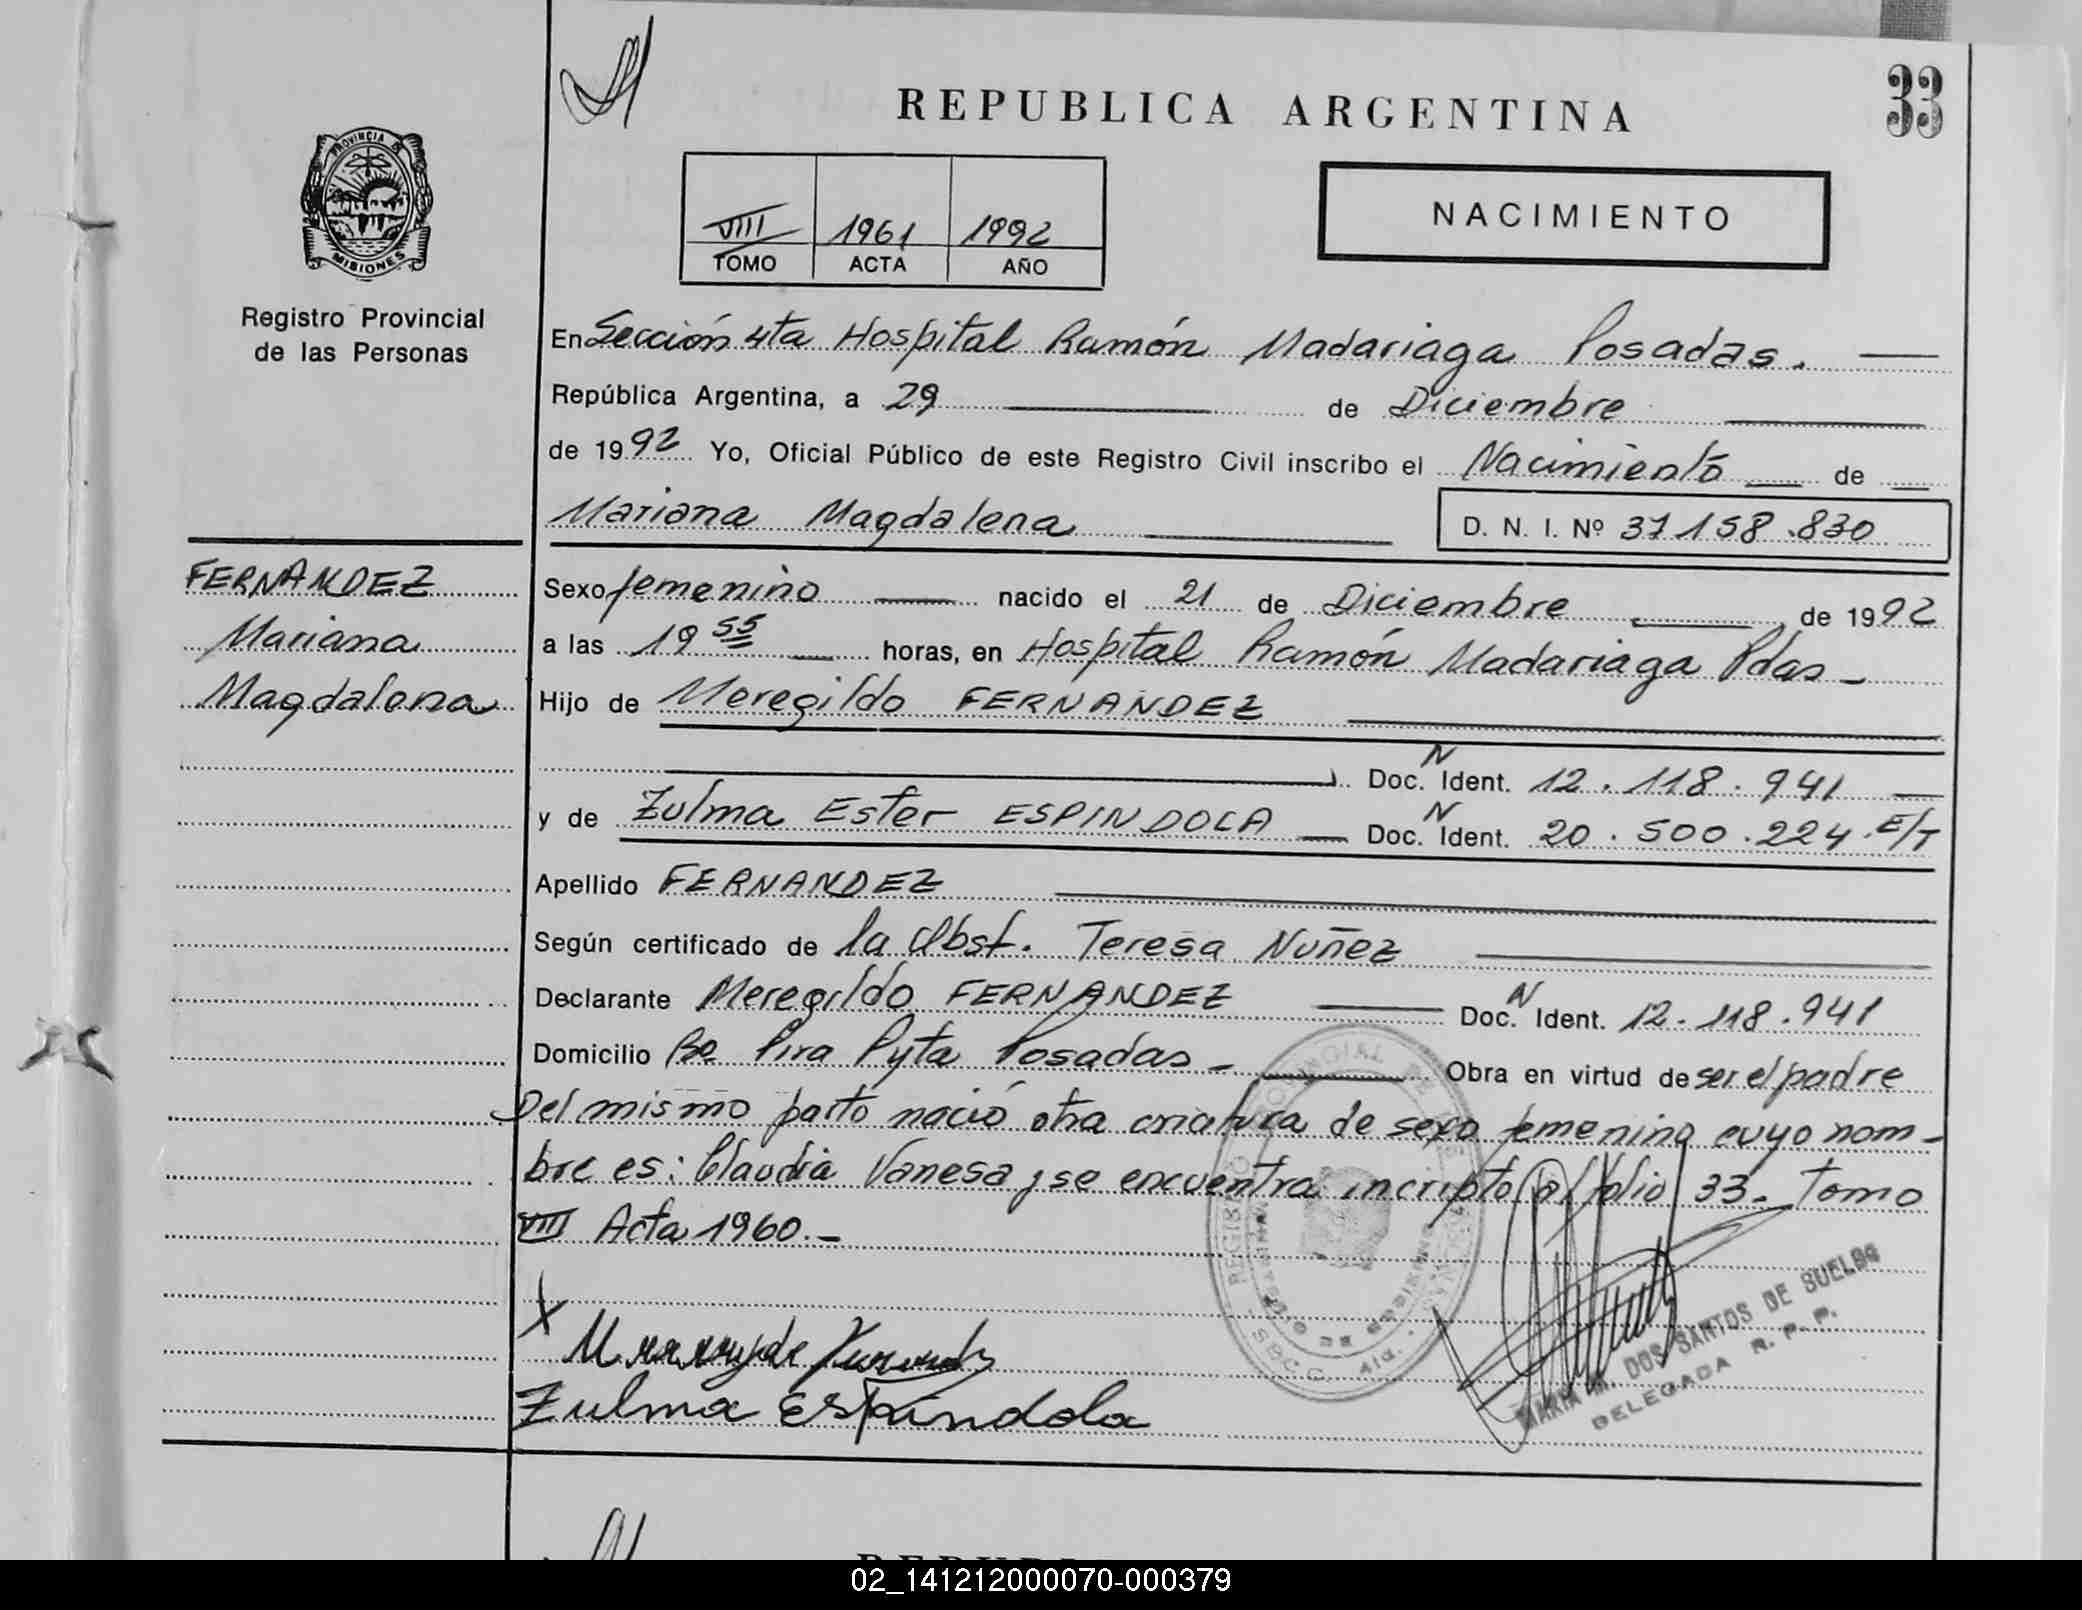 33
REPUBLICA ARGENTINA
PROVINCIA DE
MISIONES
VIII 1961 1992
TOMO ACTA AÑO
NACIMIENTO
Registro Provincial
de las Personas
En Sección 4ta Hospital Ramón Madariaga Posadas.
República Argentina, a 29 de Diciembre
de 1992 Yo, Oficial Público de este Registro Civil inscribo el Nacimiento de
Mariana Magdalena D. N. I. Nº 37158.830
FERNANDEZ
Mariana
Magdalena
Sexo femenino nacido el 21 de Diciembre de 1992
a las 19 55 horas, en Hospital Ramón Madariaga Pdas -
Hijo de Meregildo FERNANDEZ
Doc. N Ident. 12.118.941
y de Zulma Ester ESPINDOLA Doc. N Ident. 20.500.224 E/T
Apellido FERNANDEZ
Según certificado de la Obst. Teresa Nuñez
Declarante Meregildo FERNANDEZ Doc. N Ident. 12.118.941
Domicilio Bo. Pira Pyta Posadas - Obra en virtud de ser el padre
Del mismo parto nació otra criatura de sexo femenino cuyo nom-
bre es: Claudia Vanesa, se encuentra incripto al folio 33- Tomo
VIII Acta 1960.-
X
Zulma Espíndola
MARIA M. DOS SANTOS DE SUELDO
DELEGADA R. P. P.
REPUBLI
02_141212000070-000379